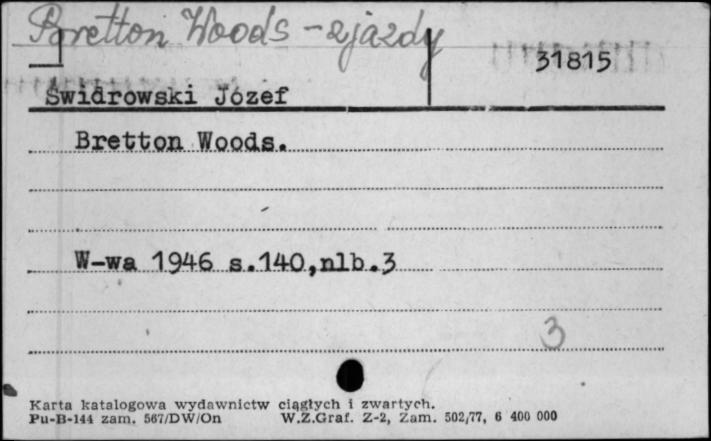 Bretton Woods - zjazdy
31815
Świdrowski Józef
Bretton Woods.
W-wa 1946 s.140,nlb.3
3
Karta katalogowa wydawnictw ciągłych i zwartych.
Pu-B-144 zam. 567/DW/On W.Z.Graf. Z-2, Zam. 502/77, 6 400 000